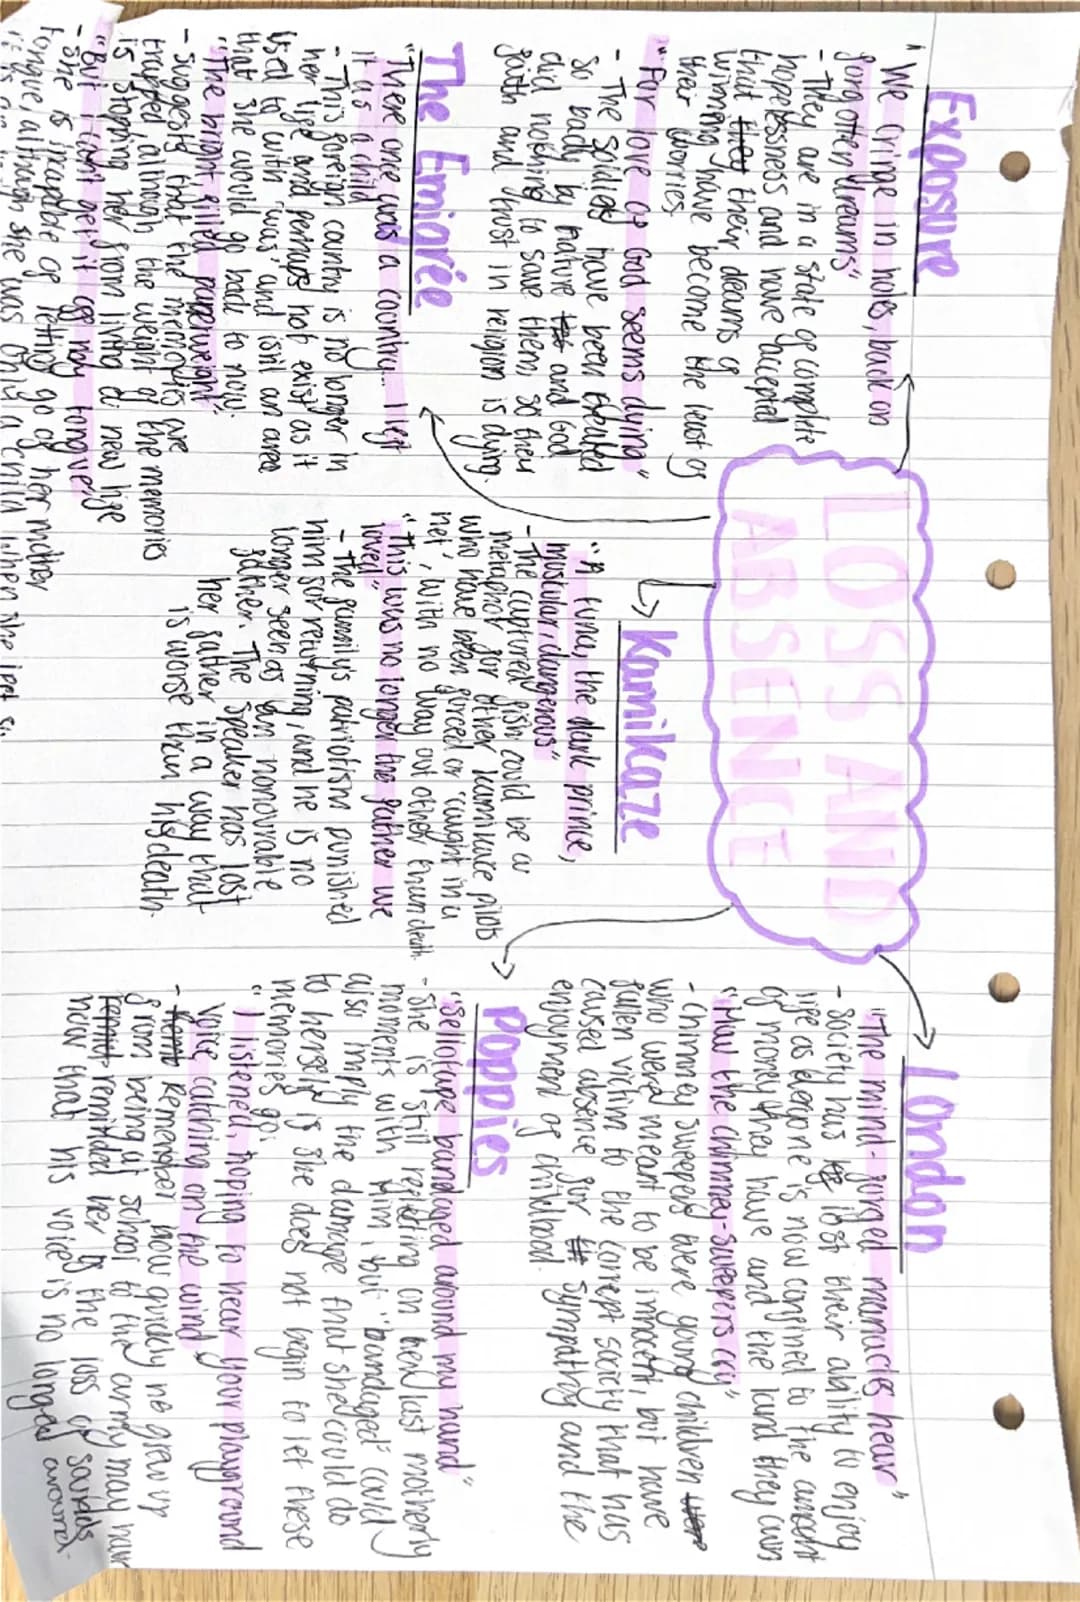 LOSS AND
ABSENCE
Exposure
"We cringe in holes, back on
forgotten dreams"
- They are in a state of complete
hopelessness and have accepted
that their dreams of
winning have become the least of
their worries
"For love of God seems dying"
- The soldiers have been treated
so badly by nature and God
did nothing to save them so their
faith and trust in religion is dying.
The Émigrée
"There once was a country... I left
it as a child
- This foreign country is no longer in
her life and perhaps not exist as it
used to with 'was' and isn't an area
that she would go back to now.
"The bright, filled paperweight"
- Suggests that the memories are
trapped, although the weight of the memories
is stopping her from living a new life
"But I can't get it off my tongue"
- She is incapable of letting go of her mother
tongue, although she was only a child when she left
Kamikaze
"A tuna, the dark prince,
muscular, dangerous"
- The captured fish could be a
metaphor for other kamikaze pilots
who have been forced or 'caught in a
net', with no way out other than death.
"This was no longer the father we
loved"
- The family's patriotism punished
him for returning, and he is no
longer seen as an honourable
father. The speaker has lost
her father in a way that
is worse than his death.
London
"The mind-forged manacles hear"
- society has lost their ability to enjoy
life as everyone is now confined to the amount
of money they have and the land they own
"How the chimney-sweepers cry"
- Chimney sweepers were young children
who were meant to be innocent, but have
fallen victim to the corrupt society that has
caused absence for sympathy and the
enjoyment of childhood.
Poppies
"Sellotape bandaged around my hand"
- She is still reflecting on her last motherly
moments with him, but "bandaged" could
also imply the damage that she could do
to herself if she does not begin to let these
memories go.
"I listened, hoping to hear your playground
voice catching on the wind"
- Remember how quickly he grew up
from being at school to the army may have
reminded her of the loss of sounds
now that his voice is no longer around.